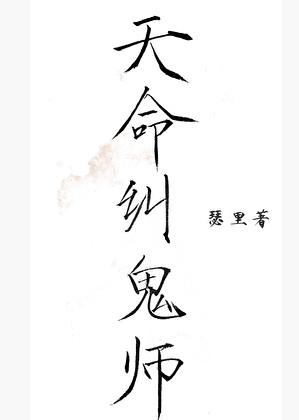 天命纠鬼师
瑟里著